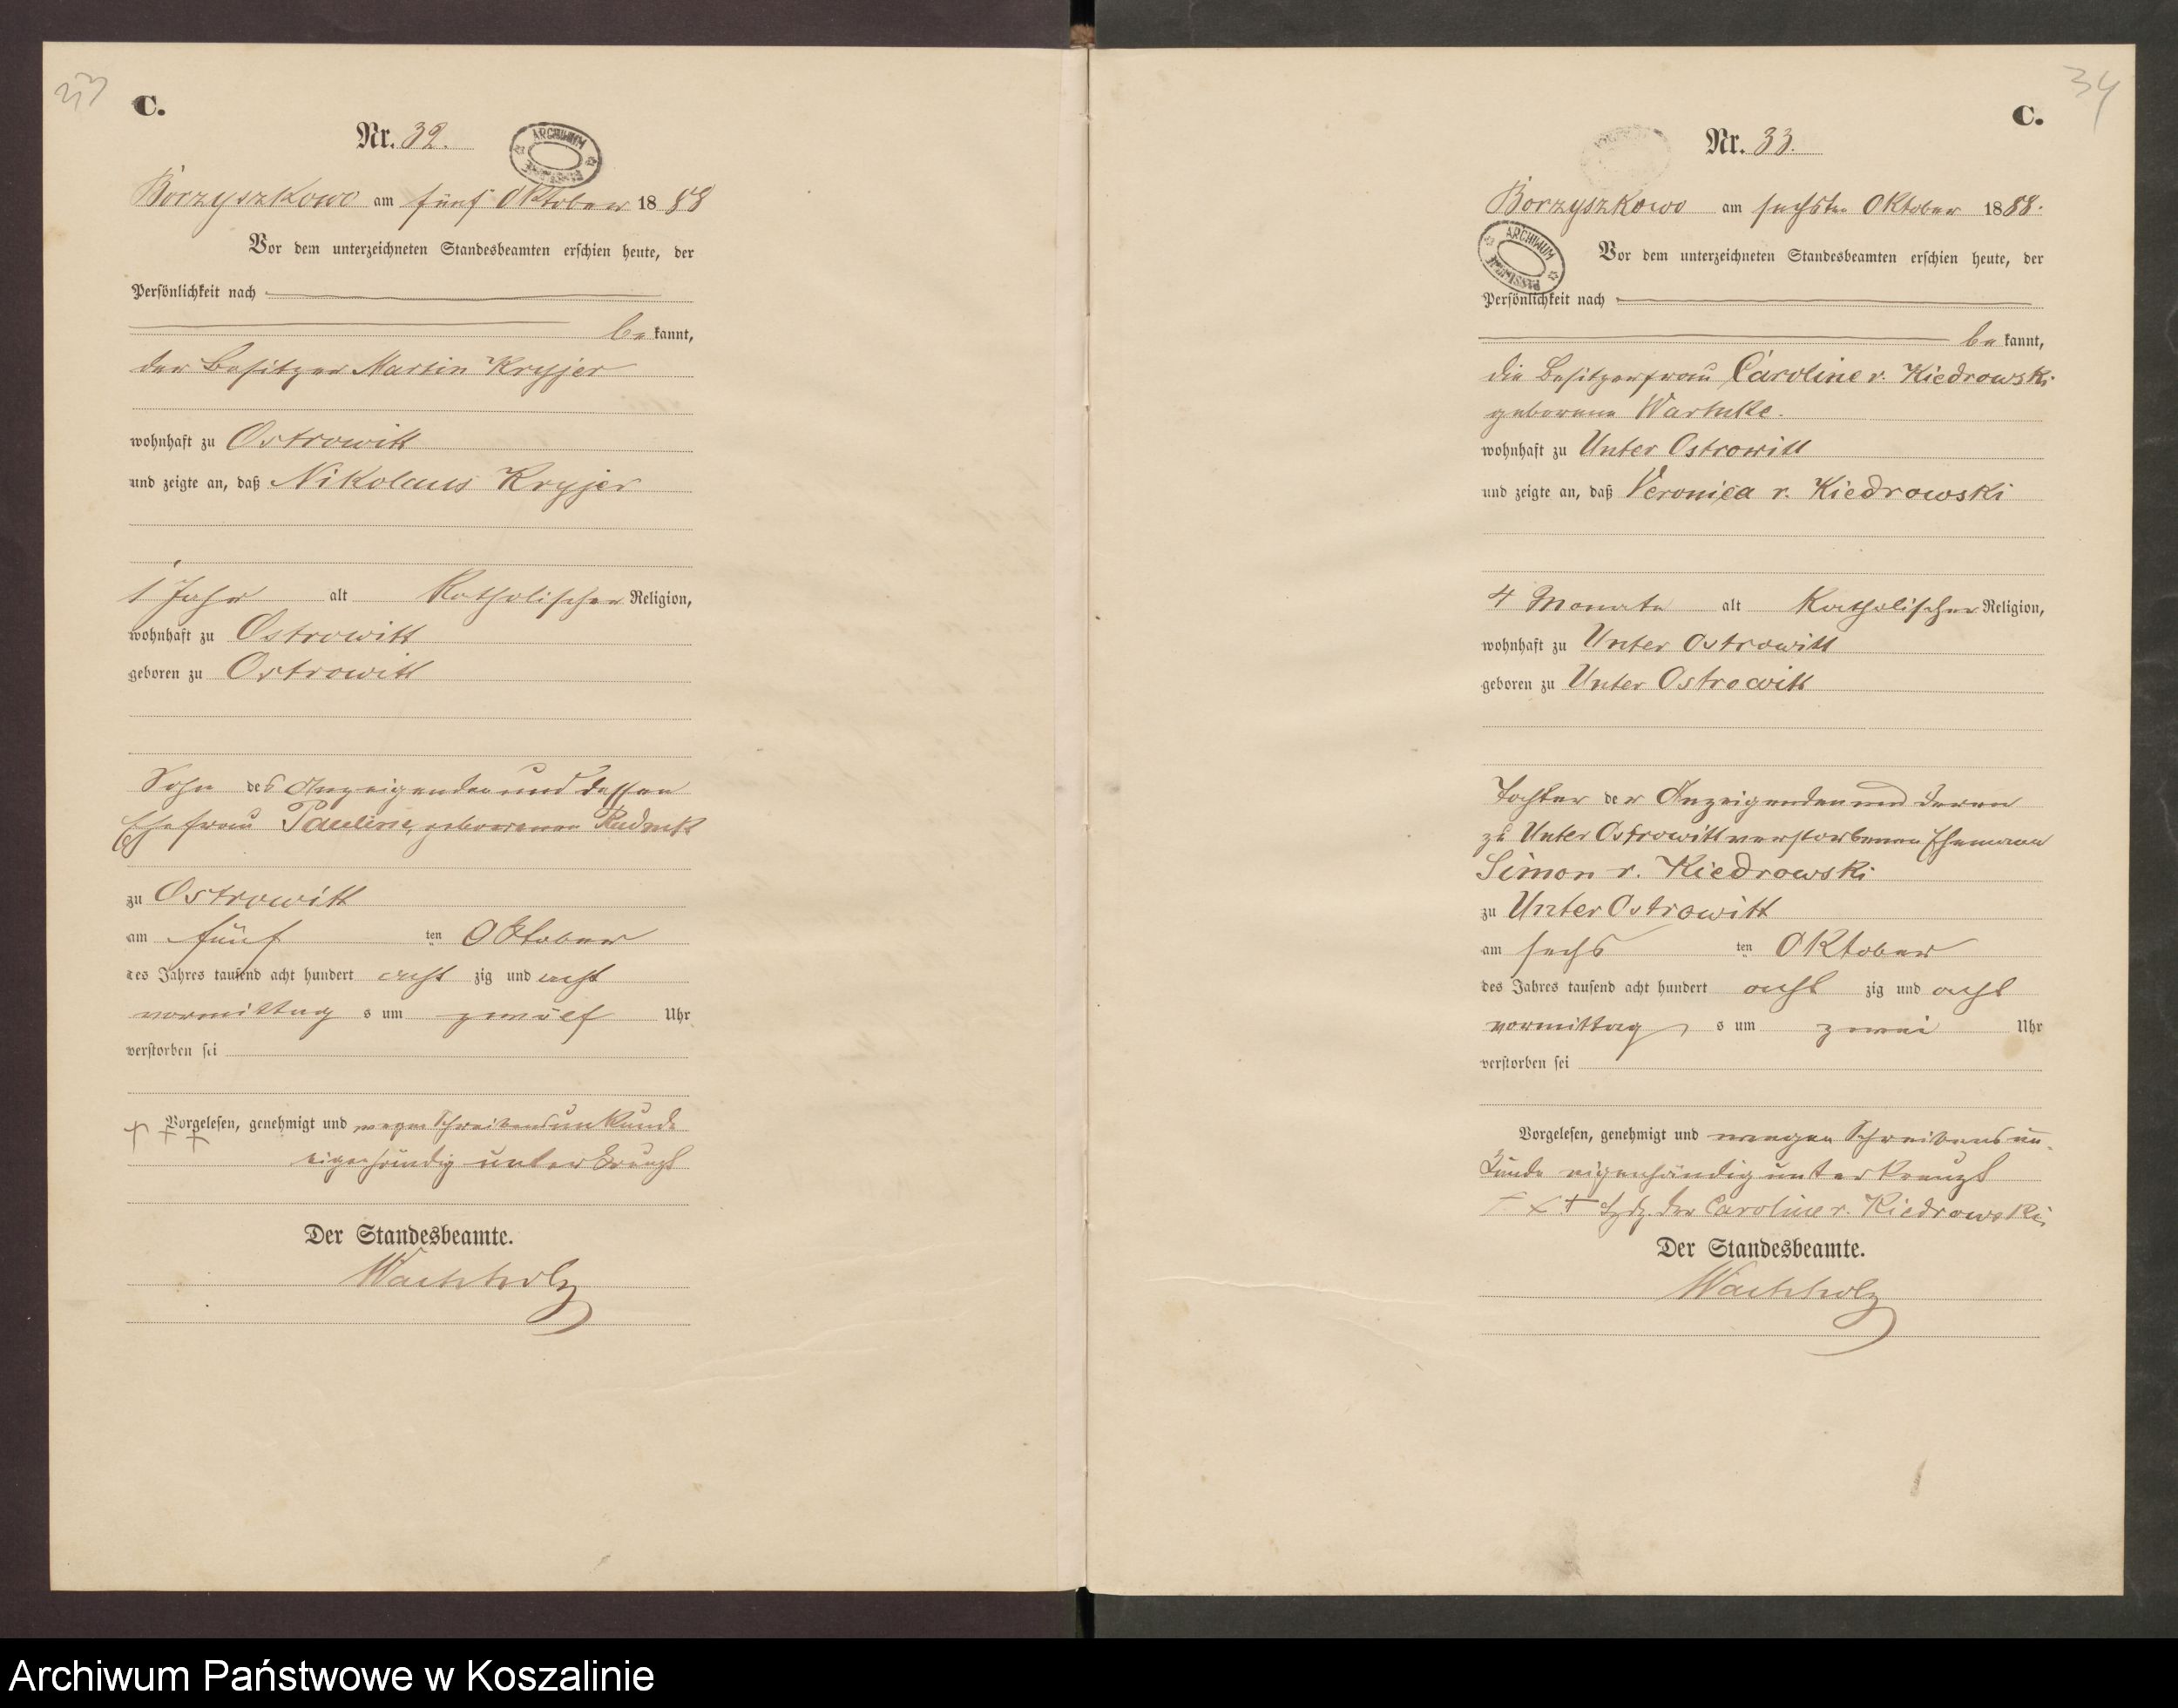 33
C.
Nr. 32.
ARCHIWUM
Borzyszkowo am fünf Oktober 1888
Vor dem unterzeichneten Standesbeamten erschien heute, der
Persönlichkeit nach
bekannt,
der Besitzer Martin Kryjer
wohnhaft zu Ostrowitt
und zeigte an, daß Nikolaus Kryjer
1 Jahr alt Katholischer Religion,
wohnhaft zu Ostrowitt
geboren zu Ostrowitt
Sohn des Anzeigenden und dessen
Ehefrau Pauline, geborenen
zu Ostrowitt
am fünf ten Oktober
des Jahres tausend acht hundert acht zig und acht
vormittags um zwölf Uhr
verstorben sei
Vorgelesen, genehmigt und wegen Schreibensunkunde
+ + +
eigenhändig unterkreuzt
Der Standesbeamte.
Wachholz
34
C.
Nr. 33.
Borzyszkowo am sechsten Oktober 1888.
ARCHIWUM
Vor dem unterzeichneten Standesbeamten erschien heute, der
Persönlichkeit nach
bekannt,
die Besitzerfrau Caroline v. Kiedrowski
geborene Warnke.
wohnhaft zu Unter Ostrowitt
und zeigte an, daß Veronica v. Kiedrowski
4 Monate alt Katholischer Religion,
wohnhaft zu Unter Ostrowitt
geboren zu Unter Ostrowitt
Tochter der Anzeigenden und deren
zu Unter Ostrowitt verstorbenen Ehemann
Simon v. Kiedrowski
zu Unter Ostrowitt
am sechs ten Oktober
des Jahres tausend acht hundert acht zig und acht
vormittags um zwei Uhr
verstorben sei
Vorgelesen, genehmigt und wegen Schreibensun-
kunde eigenhändig unterkreuzt
+ + + Hdz. der Caroline v. Kiedrowski
Der Standesbeamte.
Wachholz
Archiwum Państwowe w Koszalinie